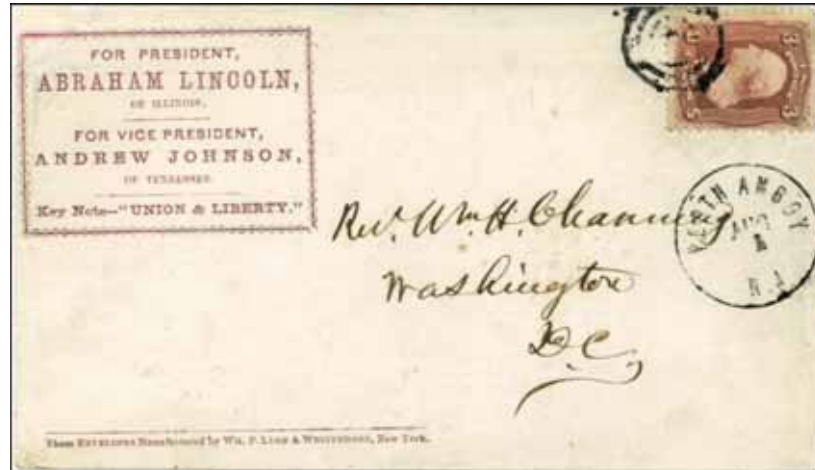 FOR PRESIDENT,
ABRAHAM LINCOLN,
OF ILLINOIS.
FOR VICE PRESIDENT,
ANDREW JOHNSON,
OF TENNESSEE.
Key Note—"UNION & LIBERTY."
3 3
PERTH AMBOY
AUG
N.J
Rev. Wm. H. Channing
Washington
D.C.
These ENVELOPES Manufactured by WM. P. LYON & WHITTEMORE, New York.